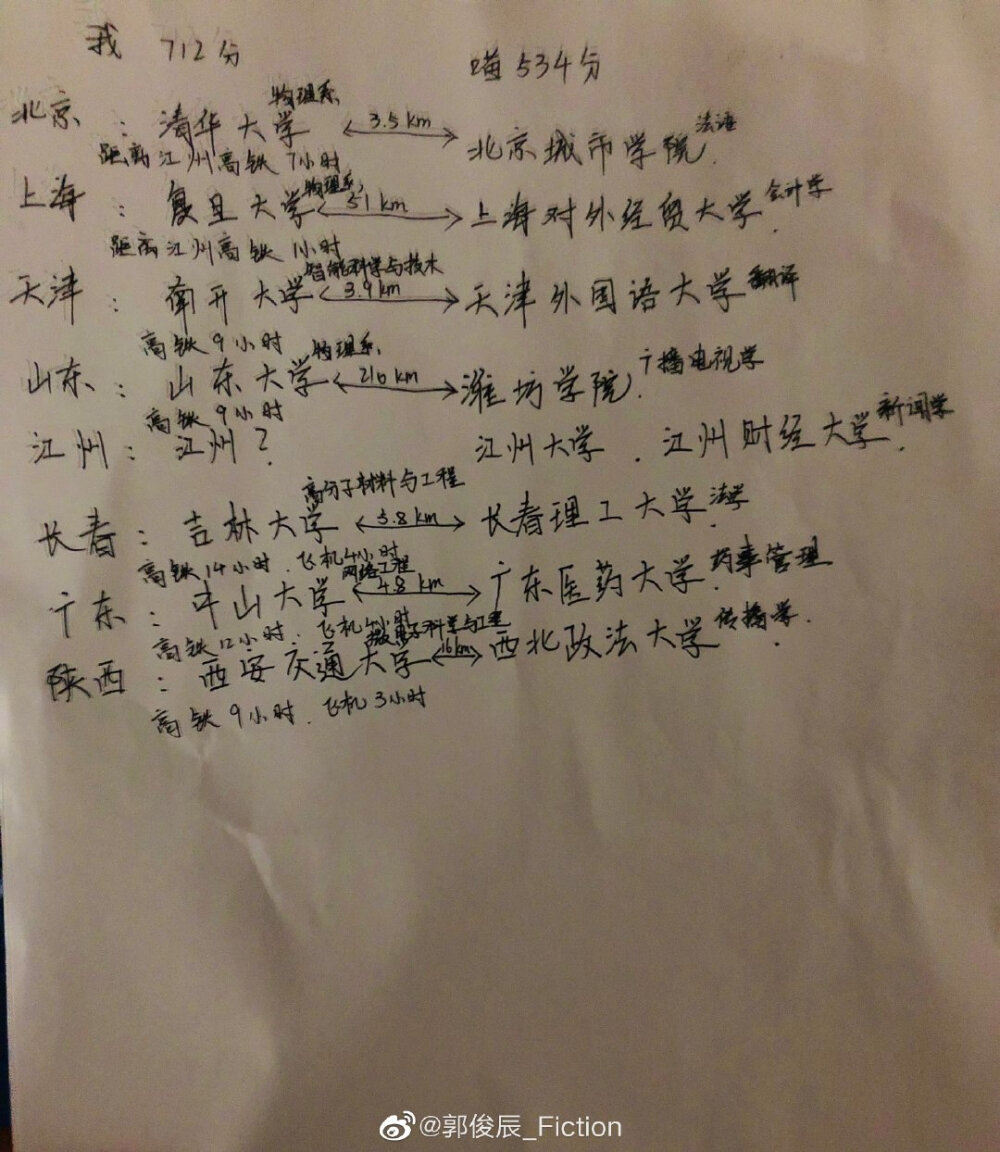 我 712分 喵 534分
北京：清华大学 物理系 3.5km 北京城市学院 法语
距离江州高铁7小时
上海：复旦大学 物理系 51km 上海对外经贸大学 会计学
距离江州高铁1小时
天津：南开大学 智能科学与技术 3.9km 天津外国语大学 翻译
高铁9小时
山东：山东大学 物理系 216km 潍坊学院 广播电视学
高铁9小时
江州：江州？ 江州大学 . 江州财经大学 新闻学
长春：吉林大学 高分子材料与工程 5.8km 长春理工大学 法学
高铁14小时. 飞机4小时
广东：中山大学 网络工程 4.8km 广东医药大学 药事管理
高铁12小时. 飞机4小时
陕西：西安交通大学 子科学与工程 16km 西北政法大学 传播学
高铁9小时. 飞机3小时
@郭俊辰_Fiction